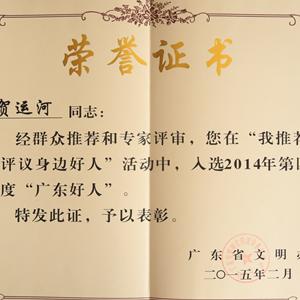 荣誉证书
贺运河 同志:
经群众推荐和专家评审,您在“我推荐
评议身边好人”活动中,入选2014年第四
度“广东好人”。
特发此证,予以表彰。
广东省文明办
二〇一五年二月